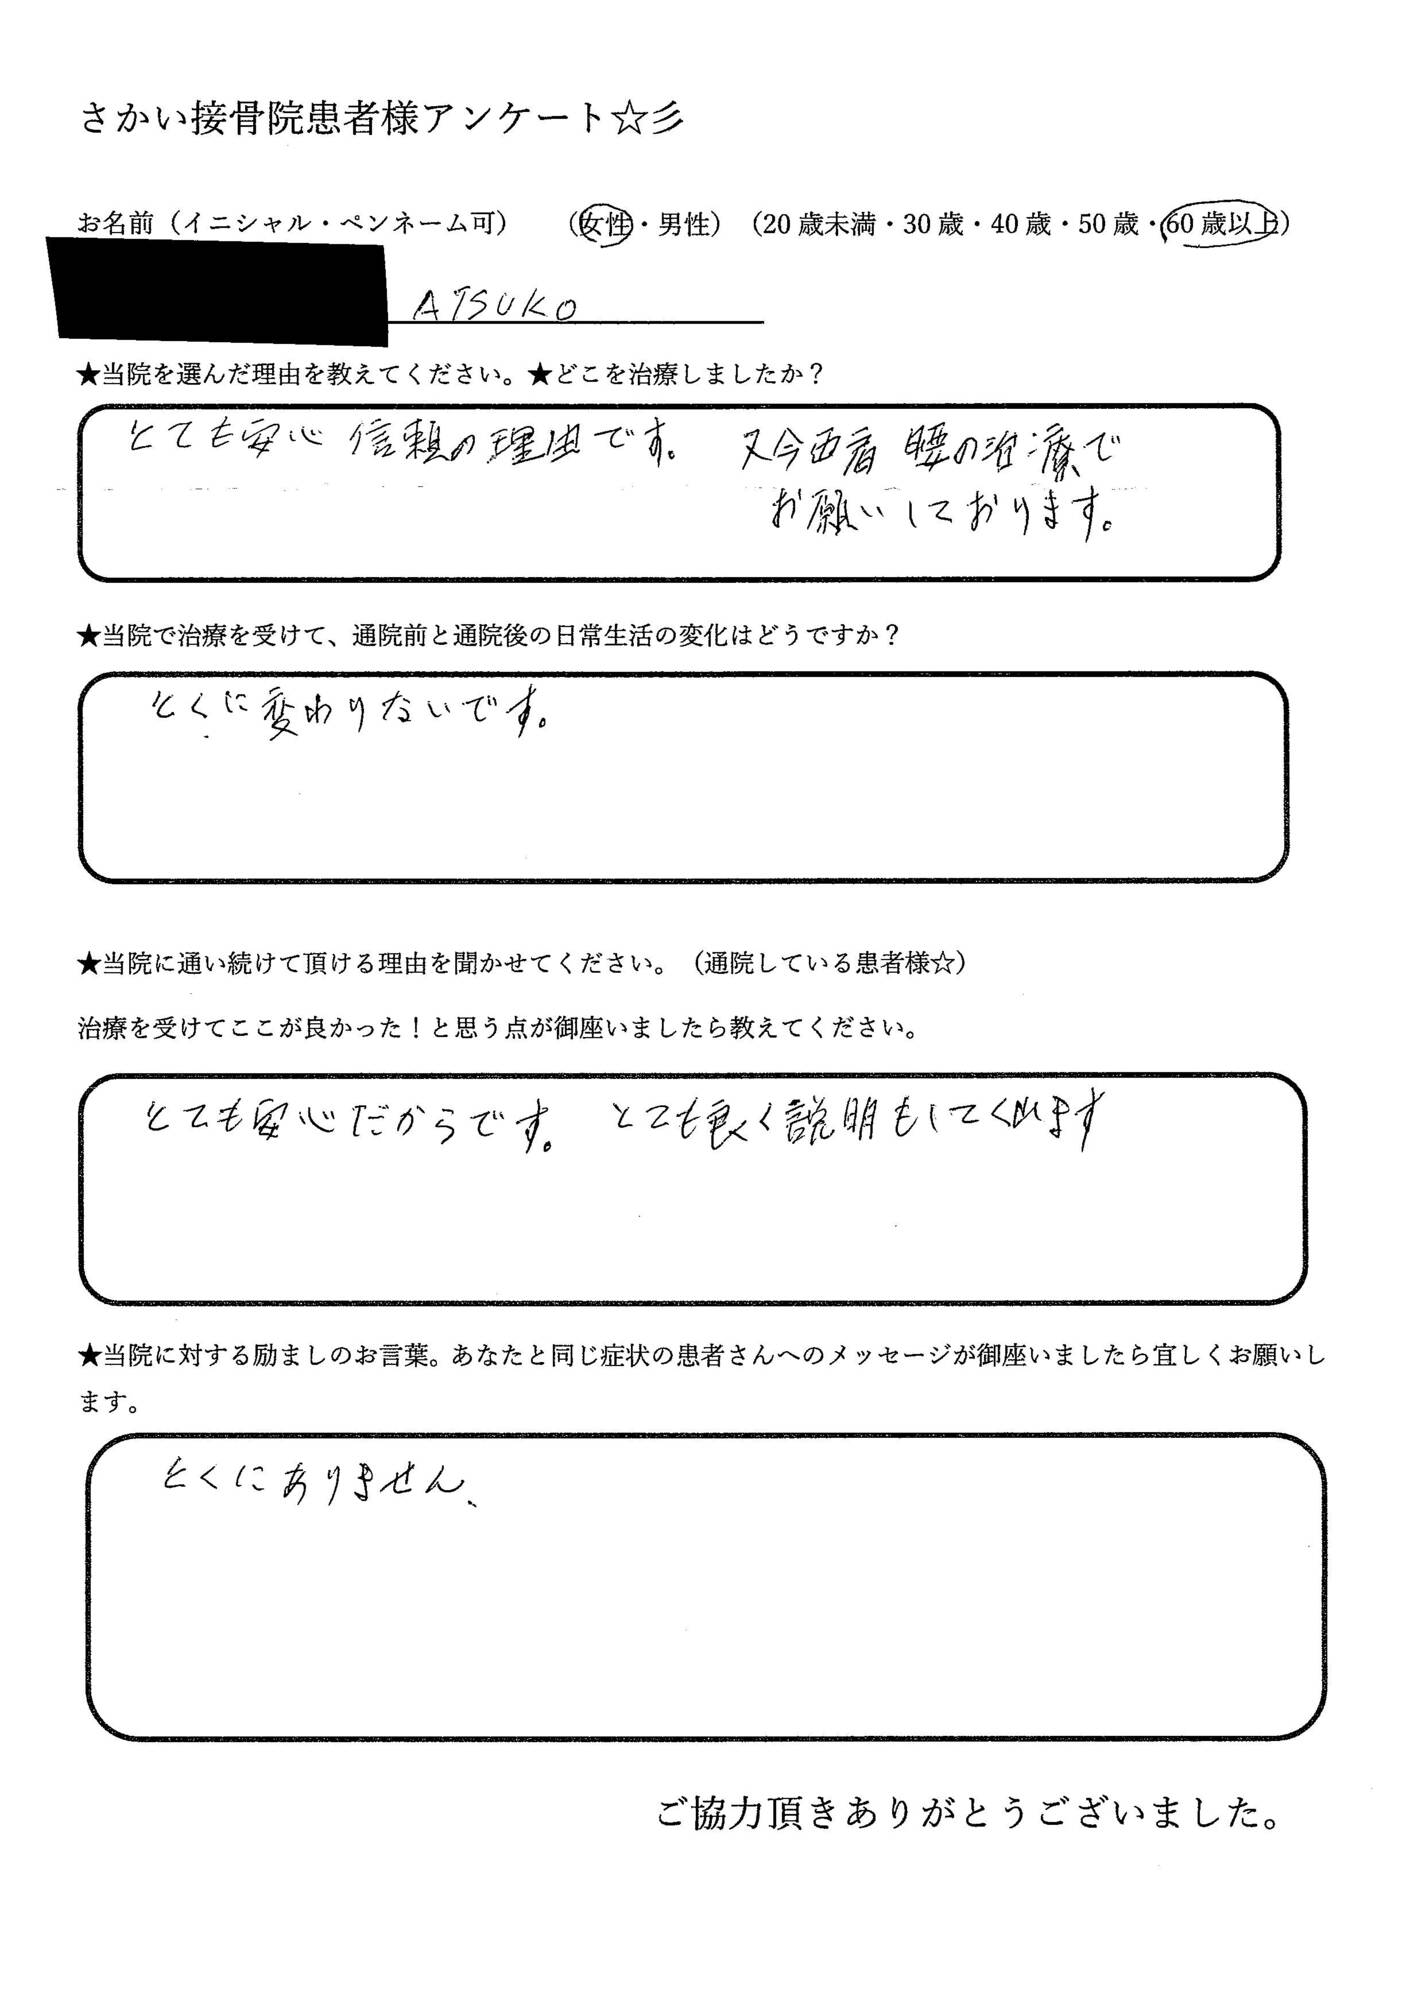 さかい接骨院患者様アンケート☆彡
お名前（イニシャル・ペンネーム可）　（女性・男性）（20歳未満・30歳・40歳・50歳・60歳以上）
ATSUKO
★当院を選んだ理由を教えてください。★どこを治療しましたか？
とても安心 信頼の理由です。 又今 腰の治療で
お願いしております。
★当院で治療を受けて、通院前と通院後の日常生活の変化はどうですか？
とくに変わりないです。
★当院に通い続けて頂ける理由を聞かせてください。（通院している患者様☆）
治療を受けてここが良かった！と思う点が御座いましたら教えてください。
とても安心だからです。 とても良く説明もしてくれます
★当院に対する励ましのお言葉。あなたと同じ症状の患者さんへのメッセージが御座いましたら宜しくお願いし
ます。
とくにありません、
ご協力頂きありがとうございました。